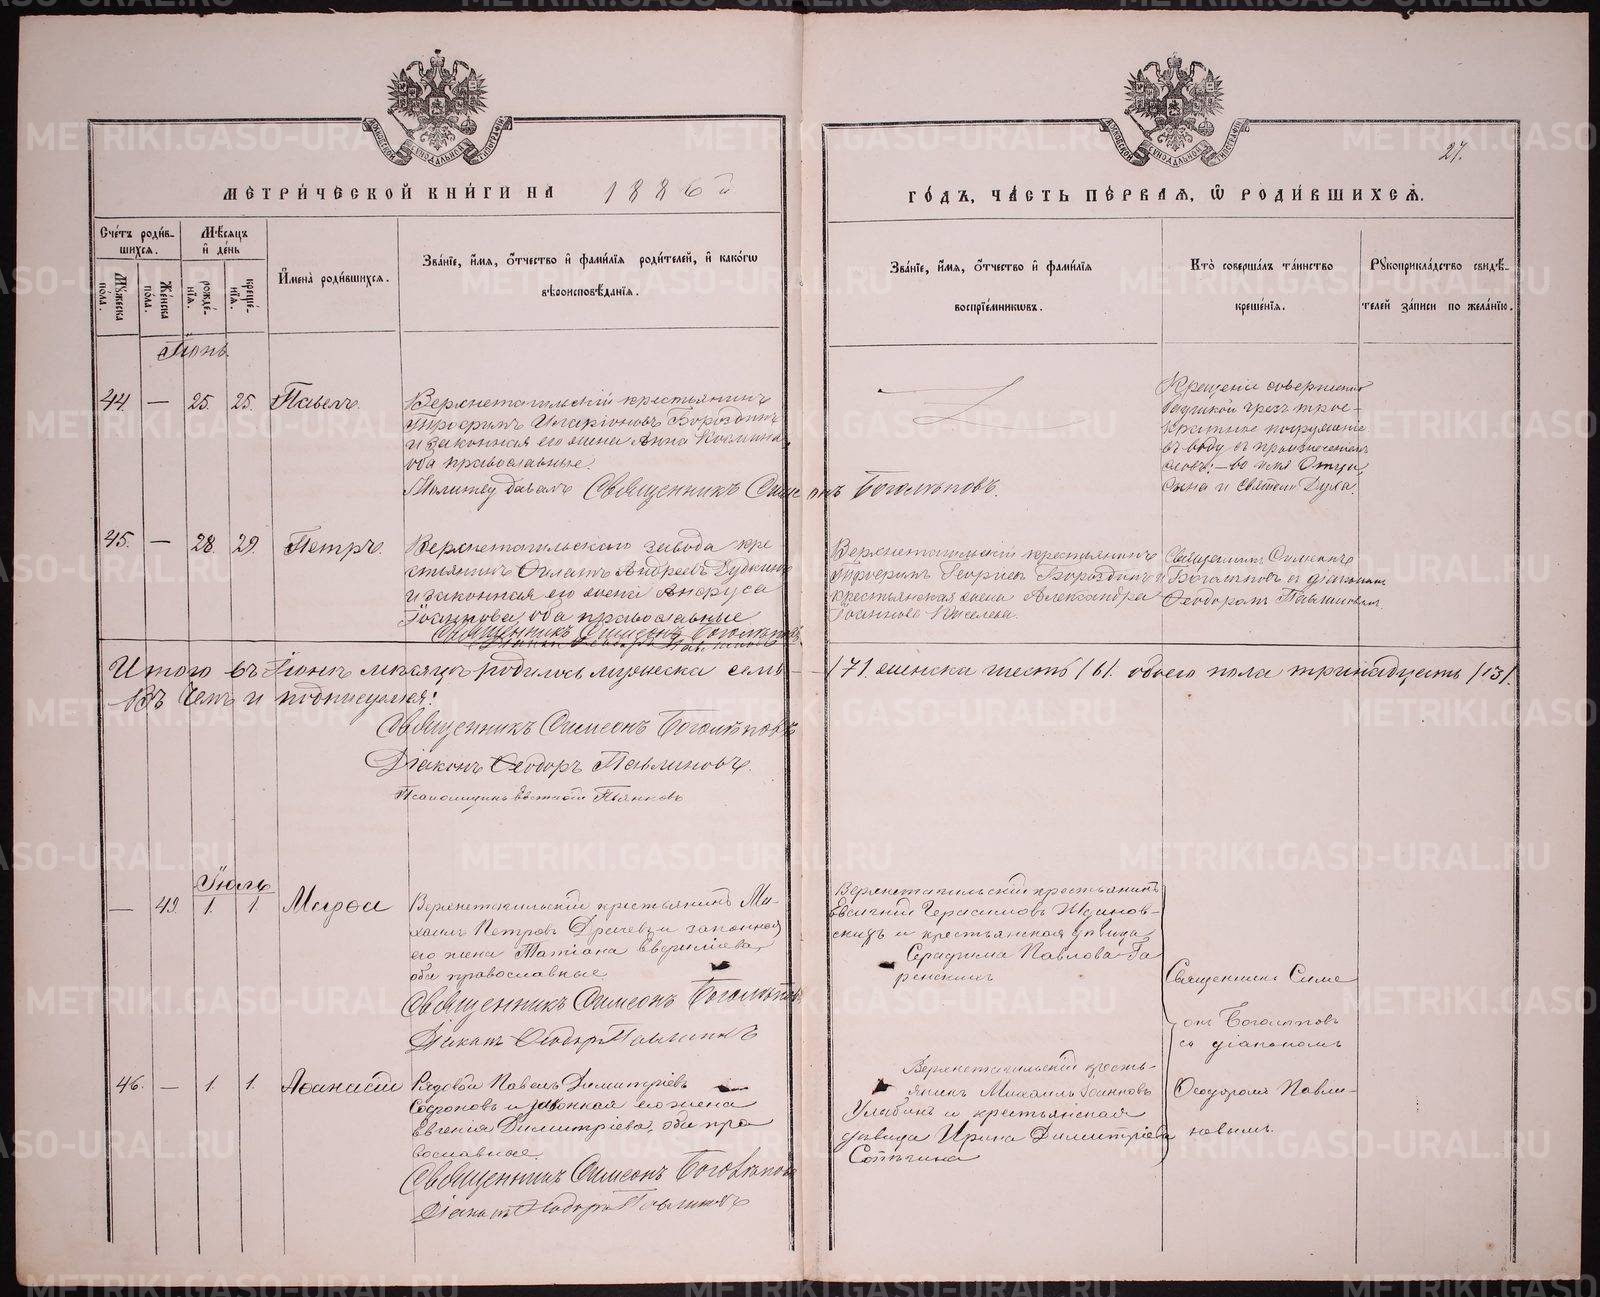 МЕТРИЧЕСКОЙ КНИГИ НА 1886й
ГОДЪ, ЧАСТЬ ПЕРВАЯ, Ѿ РОДИВШИХСЯ.
27.
Счетъ родив-
шихся.
Мѣсяцъ
и день
Мужеска
пола.
Женска
пола.
рожде-
нія.
креще-
нія.
Имена родившихся.
Званіе, имя, отчество и фамилія родителей, и какогѡ
вѣроисповѣданія.
Званіе, имя, отчество и фамилія
воспріемникѡвъ.
Кто совершалъ таинство
крещенія.
Рукоприкладство свидѣ-
телей записи по желанію.
Іюнь.
44. — 25. 25. Павелъ.
Верхнетагильскій крестьянинъ
Трофимъ Иларіоновъ Бороздинъ
и законная его жена Анна Космина
оба православные.
Молитву давалъ Священникъ Симеонъ Боголѣповъ.
Крещеніе совершено
бабушкой чрезъ трое-
кратное погруженіе
въ воду съ произнесеніемъ
словъ: — во имя Отца,
Сына и Святаго Духа.
45. — 28. 29. Петръ.
Верхнетагильскаго завода кре
стьянинъ Андреевъ
и законная его жена
Іоаннова, оба православные
Священникъ Симеонъ Боголѣповъ
Верхнетагильскій крестьянинъ
Трофимъ Георгіевъ Бороздинъ и
крестьянская жена Александра
Іоаннова Киселева.
Священникъ Симеонъ
Боголѣповъ съ діакономъ
Ѳеодоромъ Павлиновымъ.
Итого въ Іюнѣ мѣсяцѣ родилось мужеска семь — /7/. женска шесть /6/. обоего пола тринадцать /13/.
Въ чемъ и подписуемся:
Священникъ Симеонъ Боголѣповъ
Діаконъ Ѳеодоръ Павлиновъ.
Псаломщикъ Пьянковъ
Іюль
— 49. 1. 1. Марѳа
Верхнетагильскій крестьянинъ Ми-
хаилъ Петровъ и законная
его жена Татіана
оба православные
Священникъ Симеонъ Боголѣповъ
Діаконъ Ѳеодоръ Павлиновъ
Верхнетагильскій крестьянинъ
Евгеній Герасимовъ Жданов-
скихъ и крестьянская дѣвица
Серафима Павлова Га
Священникъ Симе
онъ Боголѣповъ
съ діакономъ
Ѳеодоромъ Павли-
новымъ.
46. — 1. 1. Аѳанасій
Рядовой Павелъ Димитріевъ
Софоновъ и законная его жена
Евгенія Димитріева, оба пра
вославные.
Священникъ Симеонъ Боголѣповъ
Діаконъ Ѳеодоръ Павлиновъ
Верхнетагильскій кресть-
янинъ Михаилъ Іоанновъ
Улыбинъ и крестьянская
дѣвица Ирина Димитріева
METRIKI.GASO-URAL.RU